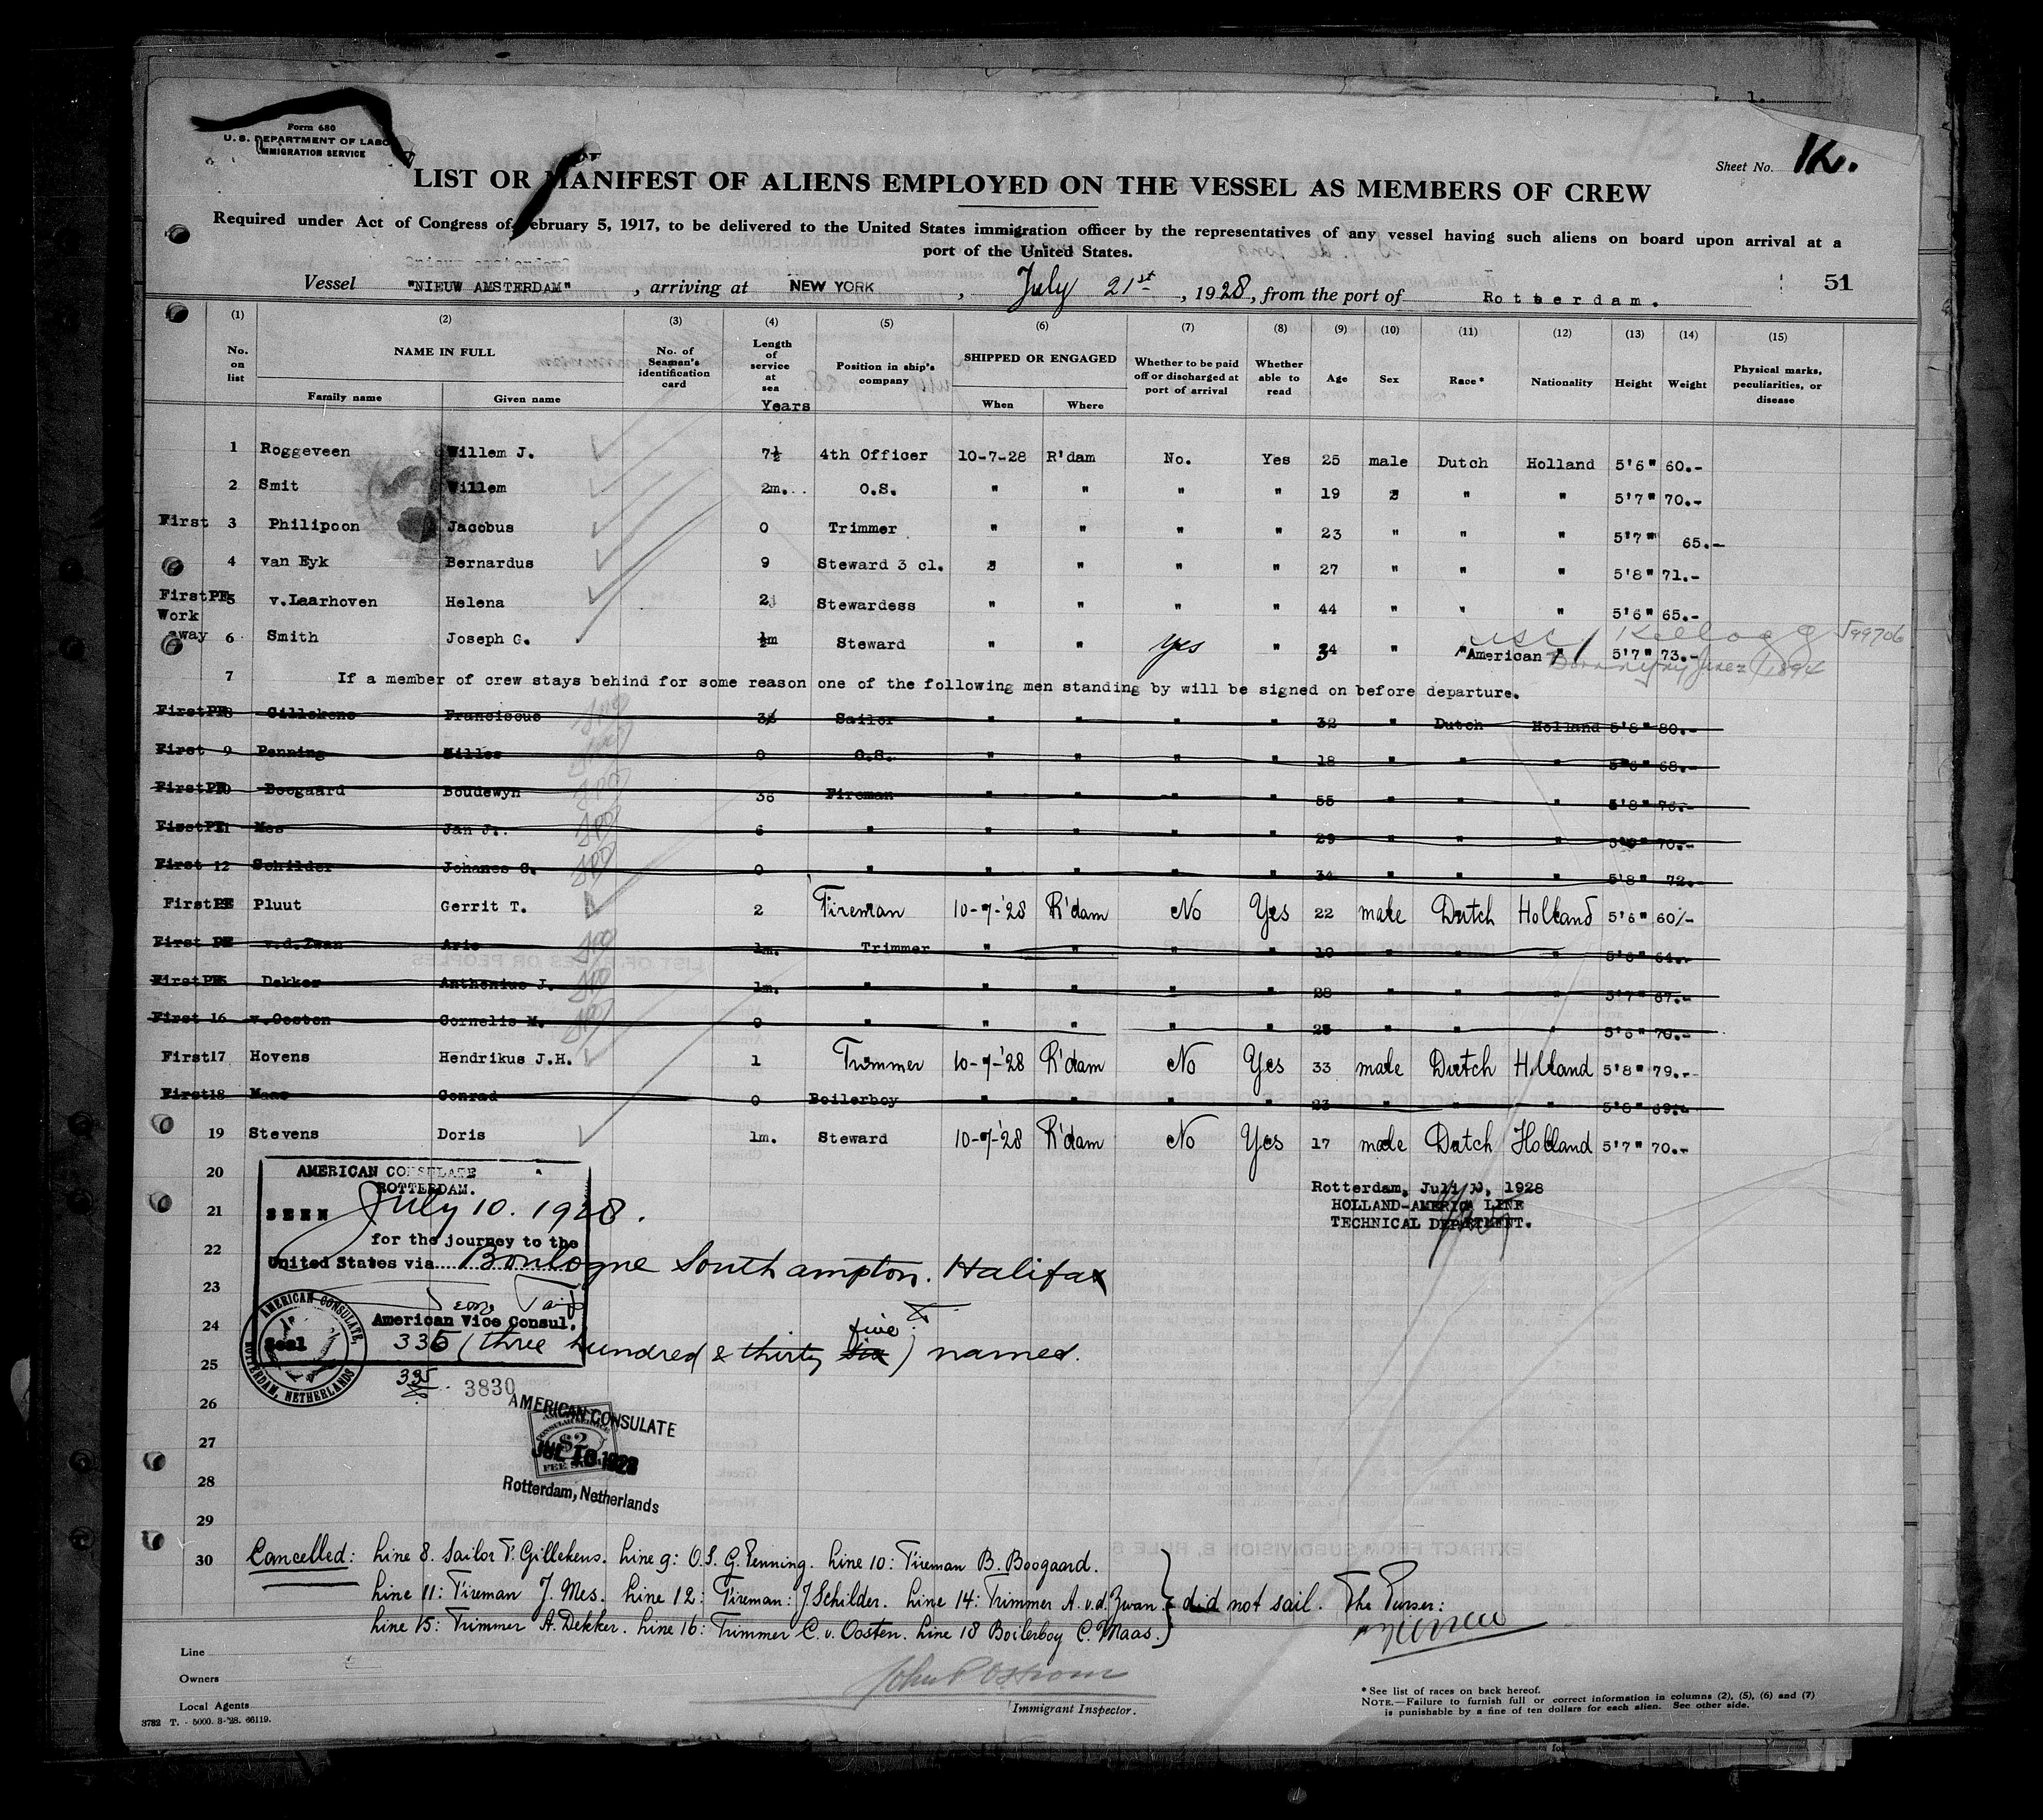 1.
Form 680
U. S. DEPARTMENT OF LABOR
IMMIGRATION SERVICE
Sheet No. 12.
LIST OR MANIFEST OF ALIENS EMPLOYED ON THE VESSEL AS MEMBERS OF CREW
Required under Act of Congress of February 5, 1917, to be delivered to the United States immigration officer by the representatives of any vessel having such aliens on board upon arrival at a
port of the United States.
Vessel "NIEUW AMSTERDAM", arriving at NEW YORK, July 21st, 1928, from the port of Rotterdam. 51
(1) (2) (3) (4) (5) (6) (7) (8) (9) (10) (11) (12) (13) (14) (15)
No. on list NAME IN FULL Family name Given name No. of Seaman's identification card Length of service at sea Years Position in ship's company SHIPPED OR ENGAGED When Where Whether to be paid off or discharged at port of arrival Whether able to read Age Sex Race* Nationality Height Weight Physical marks, peculiarities, or disease
1 Roggeveen Willem J. 7½ 4th Officer 10-7-28 R'dam No. Yes 25 male Dutch Holland 5'6" 60.-
2 Smit Willem 2m. O.S. " " " " 19 " " " 5'7" 70.-
First 3 Philipoon Jacobus 0 Trimmer " " " " 23 " " " 5'7" 65.-
4 van Eyk Bernardus 9 Steward 3 cl. " " " " 27 " " " 5'8" 71.-
FirstPE 5 v.Laarhoven Helena 2 Stewardess " " " " 44 " " " 5'6" 65.-
Work away 6 Smith Joseph G. ½m Steward " " yes " 34 " "American " 5'7" 73.- USC Kellogg 99706
7 If a member of crew stays behind for some reason one of the following men standing by will be signed on before departure.
FirstPE 8 Gillekens Franciscus Sailor " " " " 32 " Dutch Holland 5'8" 80.-
First 9 Penning Gilles 0 O.S. " " " " 18 " " " 5'6" 68.-
FirstPE 10 Boogaard Boudewyn 36 Fireman " " " " 55 " " " 5'8" 76.-
FirstPE 11 Mes Jan J. 6 " " " " " 29 " " " 70.-
First 12 Schilder Johanes G. 0 " " " " " 34 " " " 5'8" 72.-
FirstPE Pluut Gerrit T. 2 Fireman 10-7-'28 R'dam No Yes 22 male Dutch Holland 5'6" 60/-
First PE v.d.Zwan Arie 1m. Trimmer " " " " 19 " " " 5'6" 64.-
FirstPE 15 Dekker Anthonius J. 1m. " " " " " 28 " " " 5'7" 67.-
First 16 v.Oosten Cornelis M. 0 " " " " " " " " 5'6" 70.-
First 17 Hovens Hendrikus J.H. 1 Trimmer 10-7-'28 R'dam No Yes 33 male Dutch Holland 5'8" 79.-
First 18 Maas Conrad 0 Boilerboy " " " " 23 " " " 5'6" 69.-
19 Stevens Doris 1m. Steward 10-7-'28 R'dam No Yes 17 male Dutch Holland 5'7" 70.-
20
21
22
23
24
25
26
27
28
29
AMERICAN CONSULATE
ROTTERDAM.
SEEN July 10. 1928.
for the journey to the
United States via Boulogne Southampton. Halifax
American Vice Consul.
Seal
AMERICAN CONSULATE, ROTTERDAM, NETHERLANDS
335 (three hundred & thirty six five) names.
335
3830
AMERICAN CONSULATE
$2
FEE STAMP
JUL 10 1928
Rotterdam, Netherlands
Rotterdam, Juli 10, 1928
HOLLAND-AMERICA LINE
TECHNICAL DEPARTMENT.
30 Cancelled: Line 8. Sailor F. Gillekens. Line 9: O.S. G. Penning. Line 10: Fireman B. Boogaard.
Line 11: Fireman J. Mes. Line 12: Fireman: J Schilder. Line 14: Trimmer A. v.d. Zwan. } did not sail. The Purser:
Line 15: Trimmer A. Dekker. Line 16: Trimmer C. v. Oosten. Line 18 Boilerboy C. Maas.
Line
Owners
Local Agents
3782 T. - 5000. 3-'28. 66119.
John P Ostrom
Immigrant Inspector.
*See list of races on back hereof.
NOTE.—Failure to furnish full or correct information in columns (2), (5), (6) and (7)
is punishable by a fine of ten dollars for each alien. See other side.